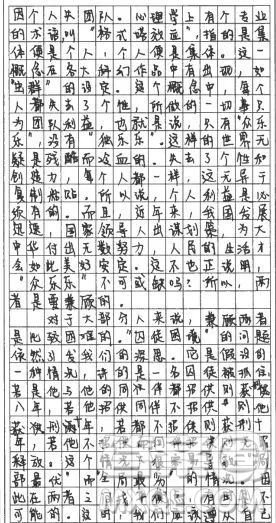 因个人失团队。心理学上有个专业
的术语叫"格式塔效应",指的是集
体便是个人,个人便是集体。这一
概念在各大科幻作品中有出现,如
"出群"的设定。这个概念中,每个
人都失去了个性,所做的一切事只
为团队利益,也就是说,只有"众乐
乐",没有"独乐乐"。这样的世界无
疑是残酷而冷血的。失去了个性和
创造力,每个人都一样,这无异于
复制粘贴。所以说,个人利益是必
须有的。而且,近年来,我国发展
迅速,国家领导人出谋划策,为大
中华付出无数努力,人民的生活才
会如此美好安定。这不也正说明,
"众乐乐"不可或缺吗?所以,两
者是要兼顾的。
对于大部分人来说,兼顾两者
是比较困难的。"囚徒困境"的问题
依然引发我们的深思。它是假设的
一种情况,讲的是一名囚徒被抓住,
若是他与他的同伙伴都招供则获刑
八年,若他招供同伴不招供,则他
获供刑 年,若都不招供则获刑十
年,若他不招供
释放。这个
即最优"而
此在两者之间
可能的。这时,我们应该遵从自己